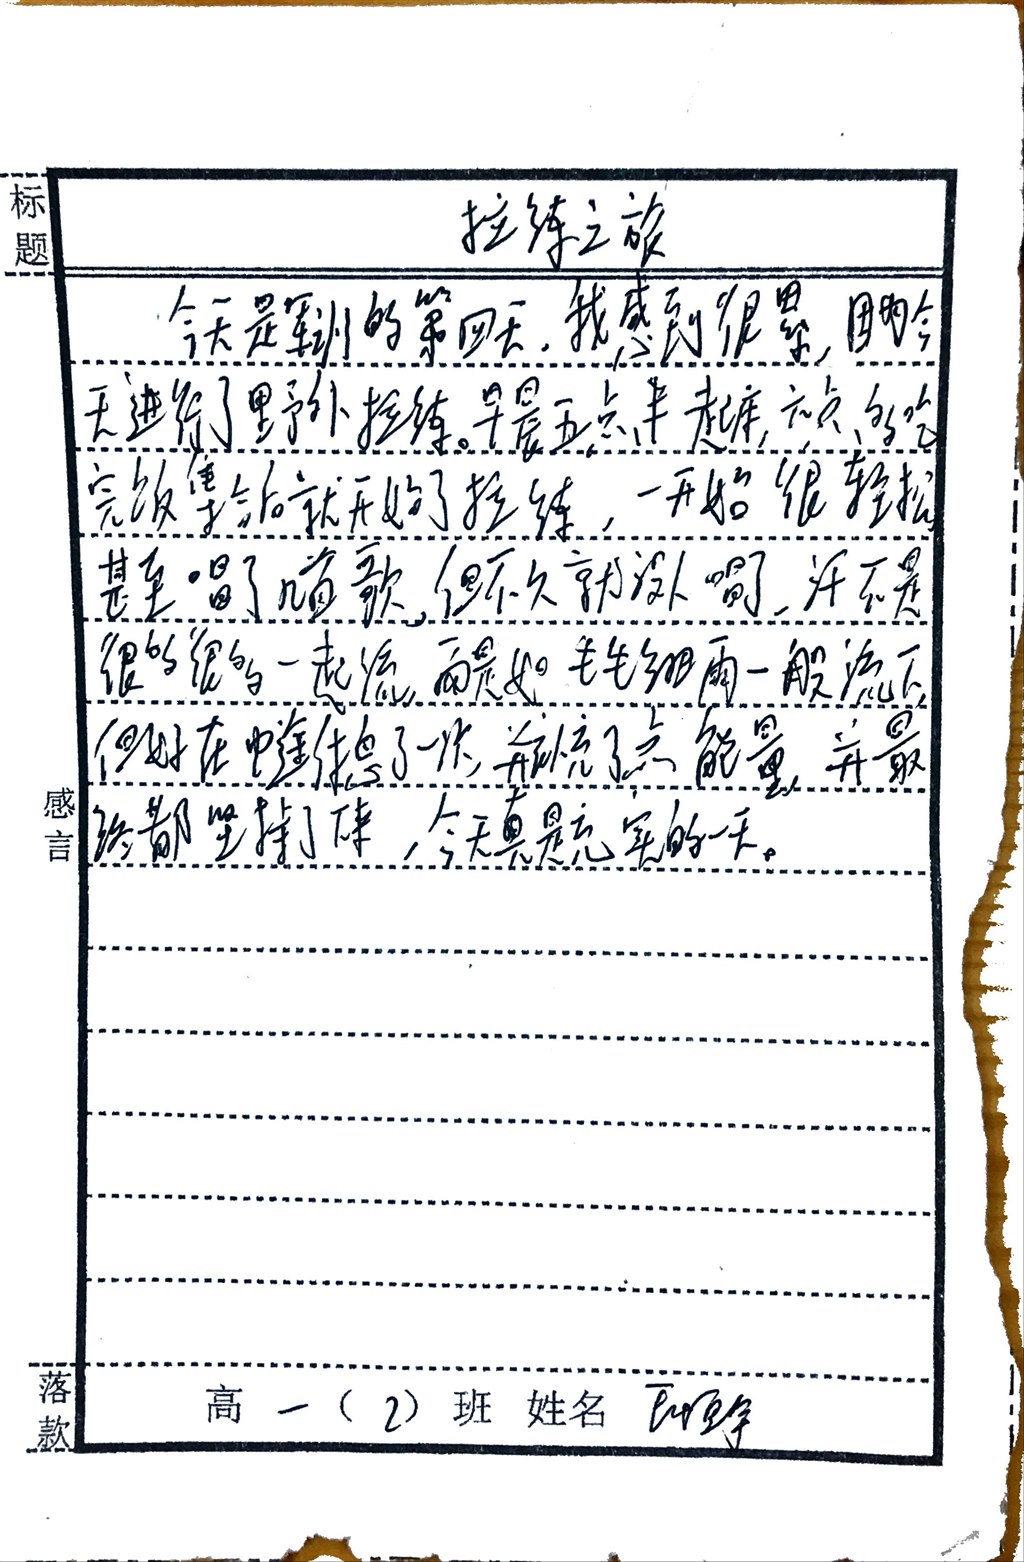 标题
拉练之旅
今天是军训的第四天,我感到很累,因为今
天进行了野外拉练。早晨五点半起床,六点
完饭集合后就开始了拉练,一开始很轻松,
甚至唱了几首歌,但不久就没人唱了,汗不是
很的很的一起流,而是如毛毛细雨一般流下,
但好在中途休息了一次,补充了点能量,并最
终都坚持了下来,今天真是充实的一天。
感言
落款
高一(2)班 姓名